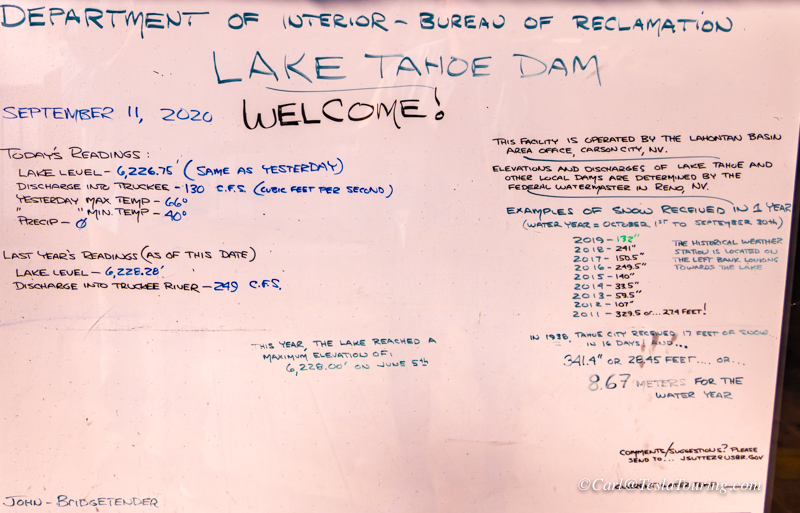 DEPARTMENT OF INTERIOR - BUREAU OF RECLAMATION
LAKE TAHOE DAM
SEPTEMBER 11, 2020
WELCOME!
TODAY'S READINGS:
LAKE LEVEL - 6,226.75' (SAME AS YESTERDAY)
DISCHARGE INTO TRUCKEE - 130 C.F.S. (CUBIC FEET PER SECOND)
YESTERDAY MAX TEMP - 66°
" MIN. TEMP - 40°
PRECIP - Ø
LAST YEAR'S READINGS (AS OF THIS DATE)
LAKE LEVEL - 6,228.28'
DISCHARGE INTO TRUCKEE RIVER - 249 C.F.S.
THIS YEAR, THE LAKE REACHED A
MAXIMUM ELEVATION OF:
6,228.00' ON JUNE 5th
THIS FACILITY IS OPERATED BY THE LAHONTAN BASIN
AREA OFFICE, CARSON CITY, NV.
ELEVATIONS AND DISCHARGES OF LAKE TAHOE AND
OTHER LOCAL DAMS ARE DETERMINED BY THE
FEDERAL WATERMASTER IN RENO, NV.
EXAMPLES OF SNOW RECEIVED IN 1 YEAR
(WATER YEAR = OCTOBER 1ST TO SEPTEMBER 30th)
2019 - 132"
2018 - 241"
2017 - 150.5"
2016 - 249.5"
2015 - 140"
2014 - 33.5"
2013 - 59.5"
2012 - 107"
2011 - 329.5 or... 27.4 FEET!
THE HISTORICAL WEATHER
STATION IS LOCATED ON
THE LEFT BANK LOOKING
TOWARDS THE LAKE
IN 1938, TAHOE CITY RECEIVED 17 FEET OF SNOW
IN 16 DAYS! AND...
341.4" OR 28.45 FEET.... OR...
8.67 METERS FOR THE
WATER YEAR
COMMENTS/SUGGESTIONS? PLEASE
SEND TO... JSUTTER@USBR.GOV
©Carl@TeslaTouring.com
JOHN - BRIDGETENDER